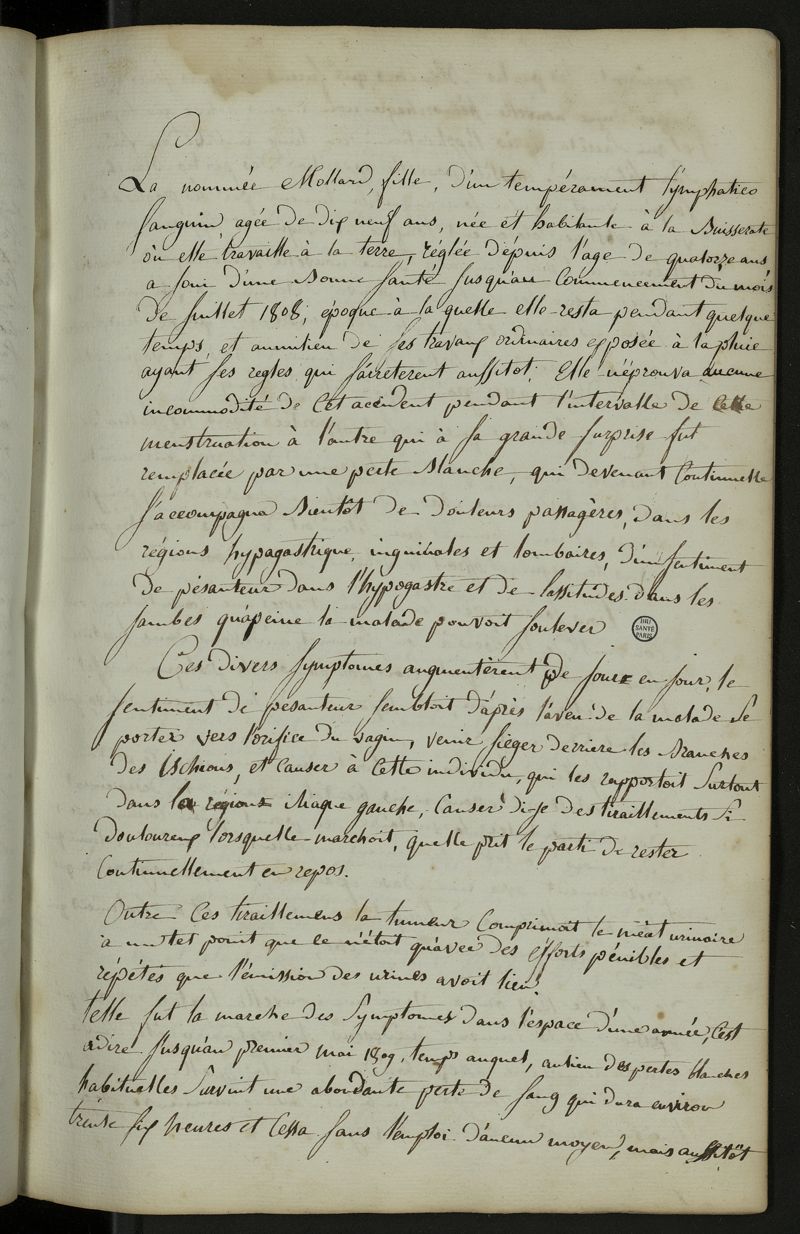 La nommée Mollard, fille, d'un tempérament lymphatico
sanguin, agée de dix neuf ans, née et habitante à la Buisserate
où elle travaille à la terre, réglée dépuis l'age de quatorze ans
a joui d'une bonne santé jusqu'au commencement du mois
de juillet 1808, époque à la quelle elle resta pendant quelque
temps, et aumilieu de ses travaux ordinaires exposée à la pluie
ayant ses regles qui s'arrêterent aussitot. Elle n'éprouva aucune
incommodité de cet accident pendant l'intervalle de cette
menstruation à l'autre qui à sa grande surprise fut
remplacée par une perte blanche, qui devenant continuelle
s'accompagna bientôt de douleurs passagères, dans les
régions hypagastrique, inguinales et lombaires, d'un sentiment
de pésanteur dans l'hypogastre et de lassitudes dans les
jambes qu'àpeine la malade pouvoit soulever
BIU SANTÉ PARIS
Ces divers symptomes augmentèrent de jour en jour, le
sentiment de pesanteur sembloit d'après l'aveu de la malade se
porter vers l'orifice du vagin, venir siéger derriere les branches
des ischions, et causer à cette individu, qui les rapportoit surtout
dans la région iliaque gauche, causer dis-je des tiraillements si
douloureux lorsquelle marchoit, quelle prit le parti de rester
continuellement en repos.
Outre ces tiraillemens la tumeur comprimoit le méat urinaire
à un tel point que ce n'étoit qu'avec des efforts pénibles et
répétés que l'émission des urines avoit lieu.
telle fut la marche des symptomes dans l'espace d'une année, c'est
adire jusqu'au premier mai 1809, temps auquel, aulieu des pertes blanches
habituelles survint une abondante perte de sang qui dura environ
trente six heures et cessa sans l'emploi d'aucun moyen, mais aussitôt